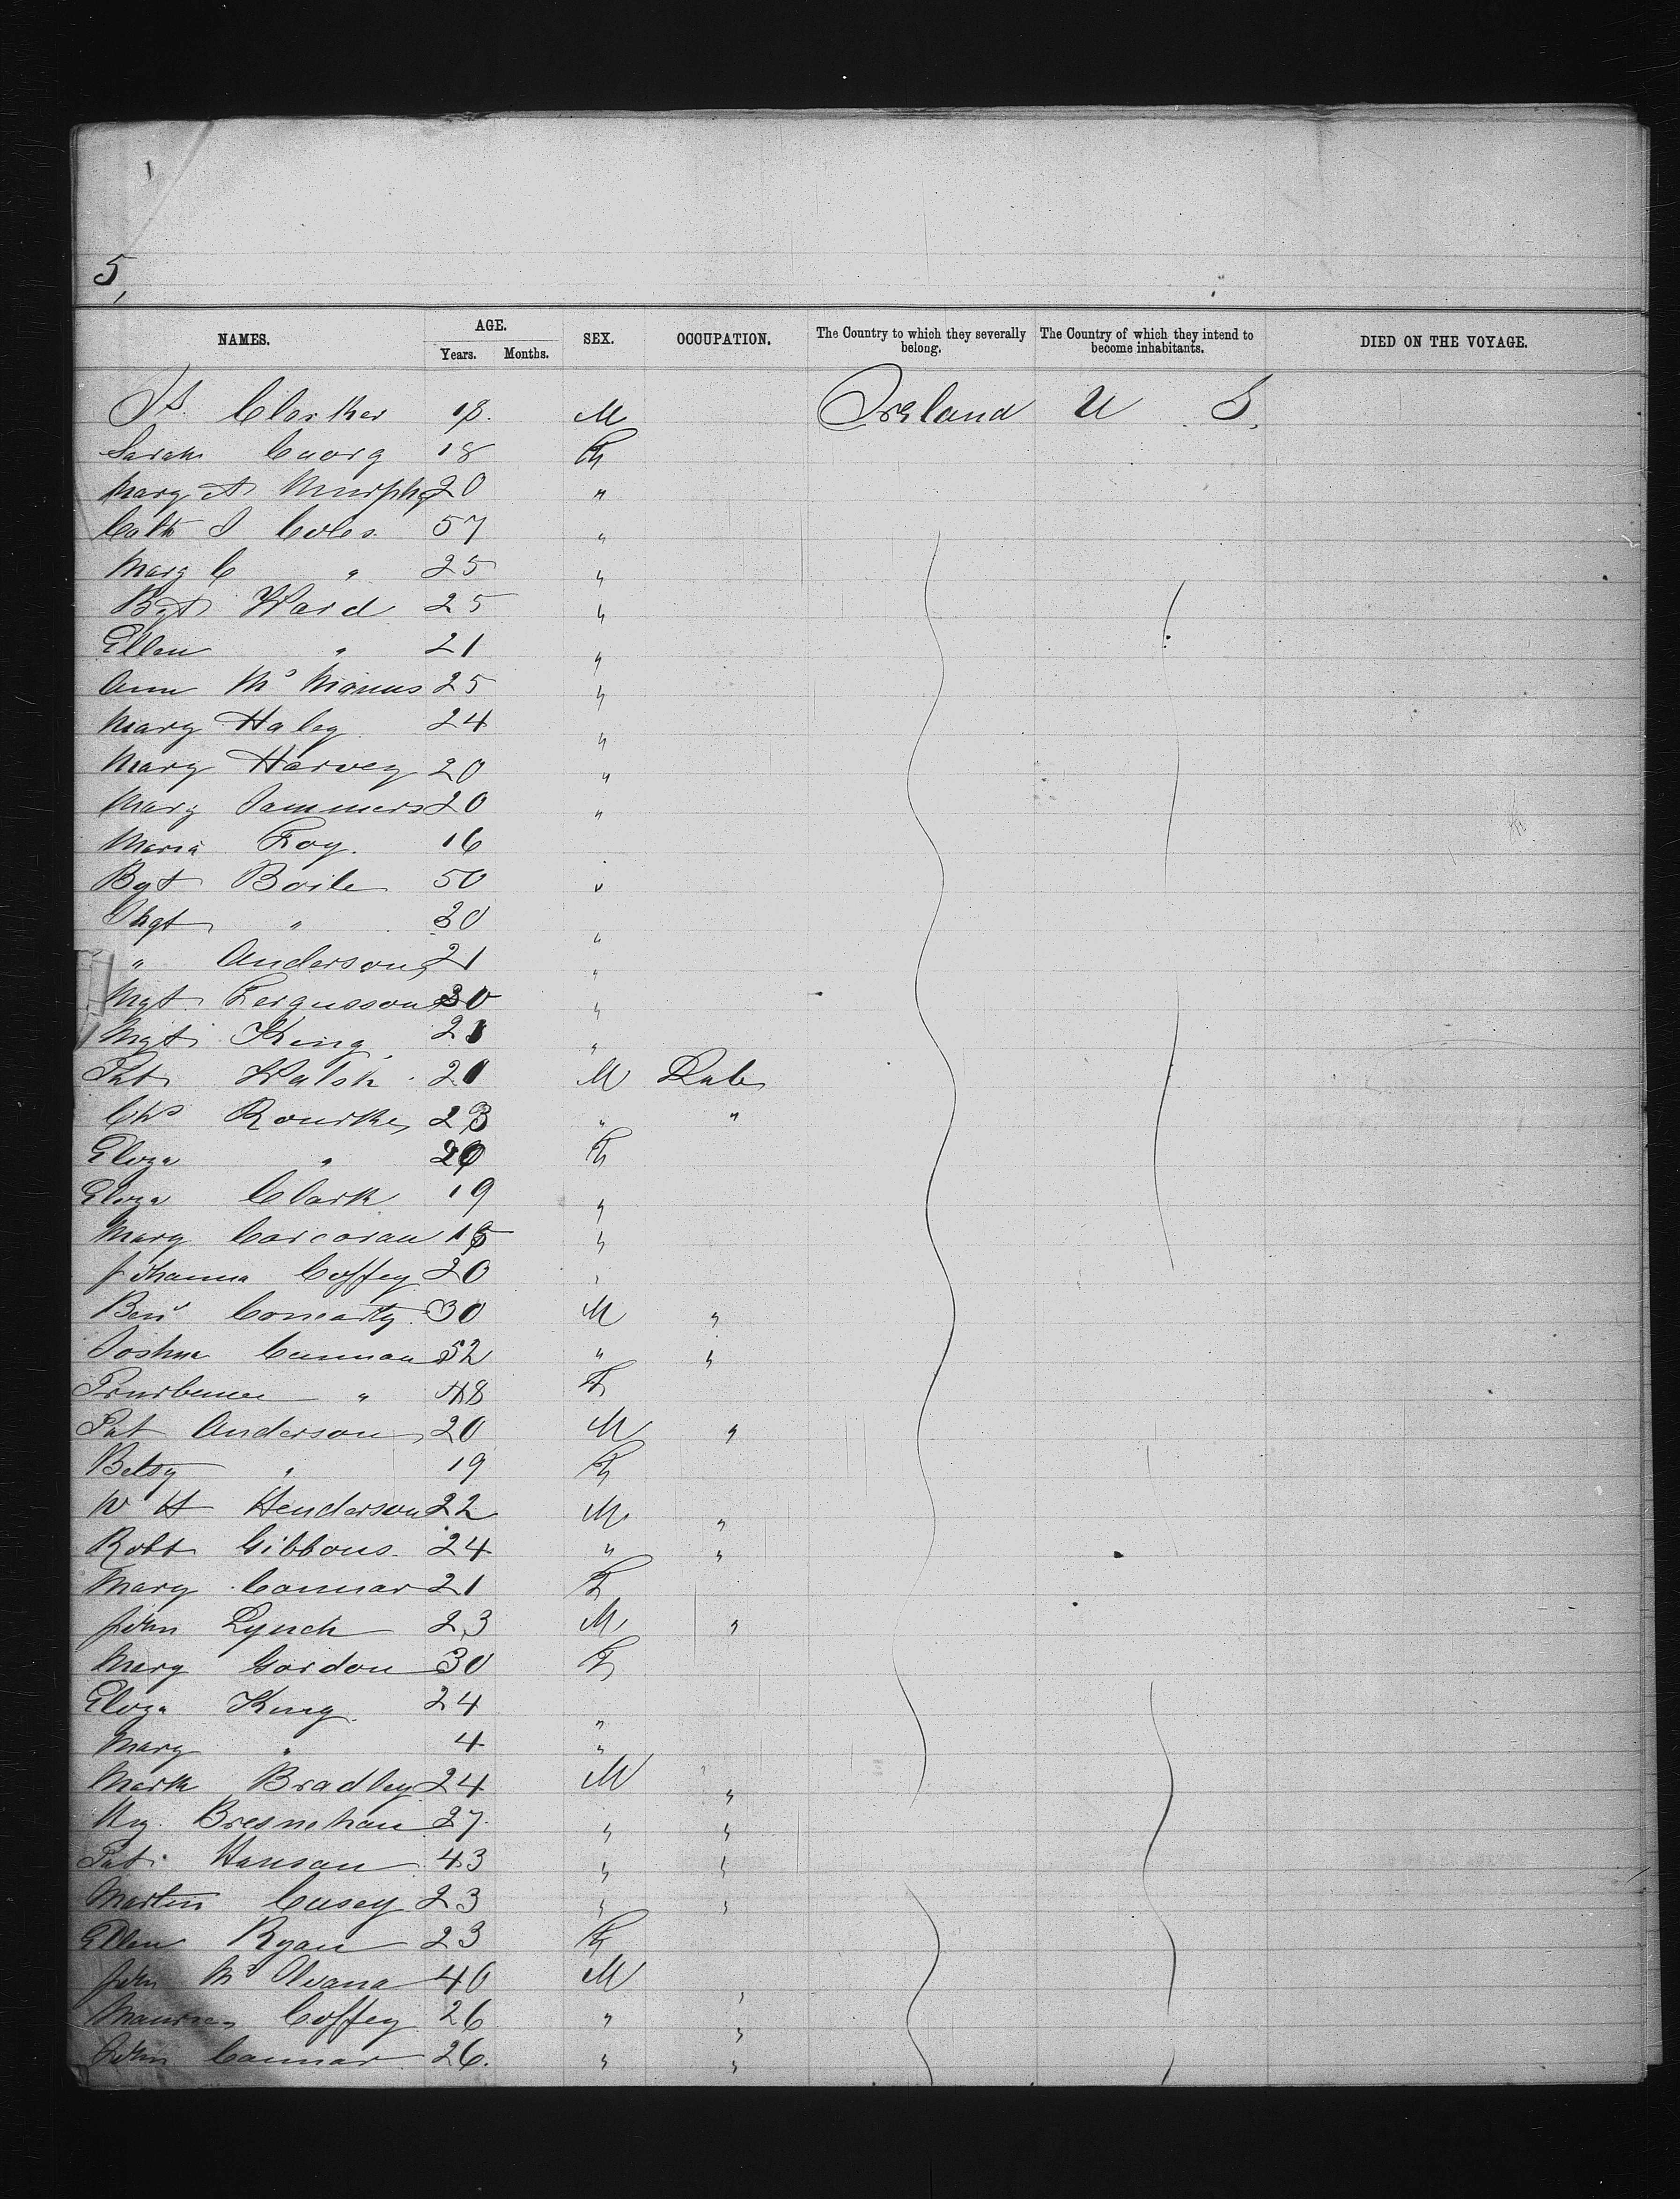 5,
NAMES. AGE. Years. Months. SEX. OCCUPATION. The Country to which they severally belong. The Country of which they intend to become inhabitants. DIED ON THE VOYAGE.
Js. Clarker 18. M Ireland U S.
Sarah 18 F
Mary A Murphy 20 "
Cath J Coles 57 "
Mary C " 25 "
Bgt Ward 25 "
Ellen " 21 "
Ann Mc Manus 25 "
Mary Haley 24 "
Mary Harvey 20 "
Mary Sammers 20 "
Maria Foy. 16
Bgt Boile 50 "
Mgt " 30 "
" Anderson 21 "
Mgt Fergusson 30 "
Mgt King 21 "
Pat Walsh 20 M Lab
Chs Rourke 23 " "
Eliza " 20 F
Eliza Clark 19 "
Mary Corcoran 18 "
Johanna Coffey 20 "
Benj Conearty 30 M "
Joshua Cannan 52 " "
" 48 F
Pat Anderson 20 M "
Betsy " 19 F
W H Henderson 22 M "
Robt Gibbons 24 " "
Mary Connar 21 F
John Lynch 23 M "
Mary Gordon 30 F
Eliza King 24 "
Mary " 4 "
Mark Bradley 24 M "
Hy. Bresnehan 27 " "
Pat Hansan 43 " "
Martin Casey 23 " "
Ellen Ryan 23 F
John Mc Ilvana 40 M "
Maurice Coffey 26 " "
John Connar 26. " "